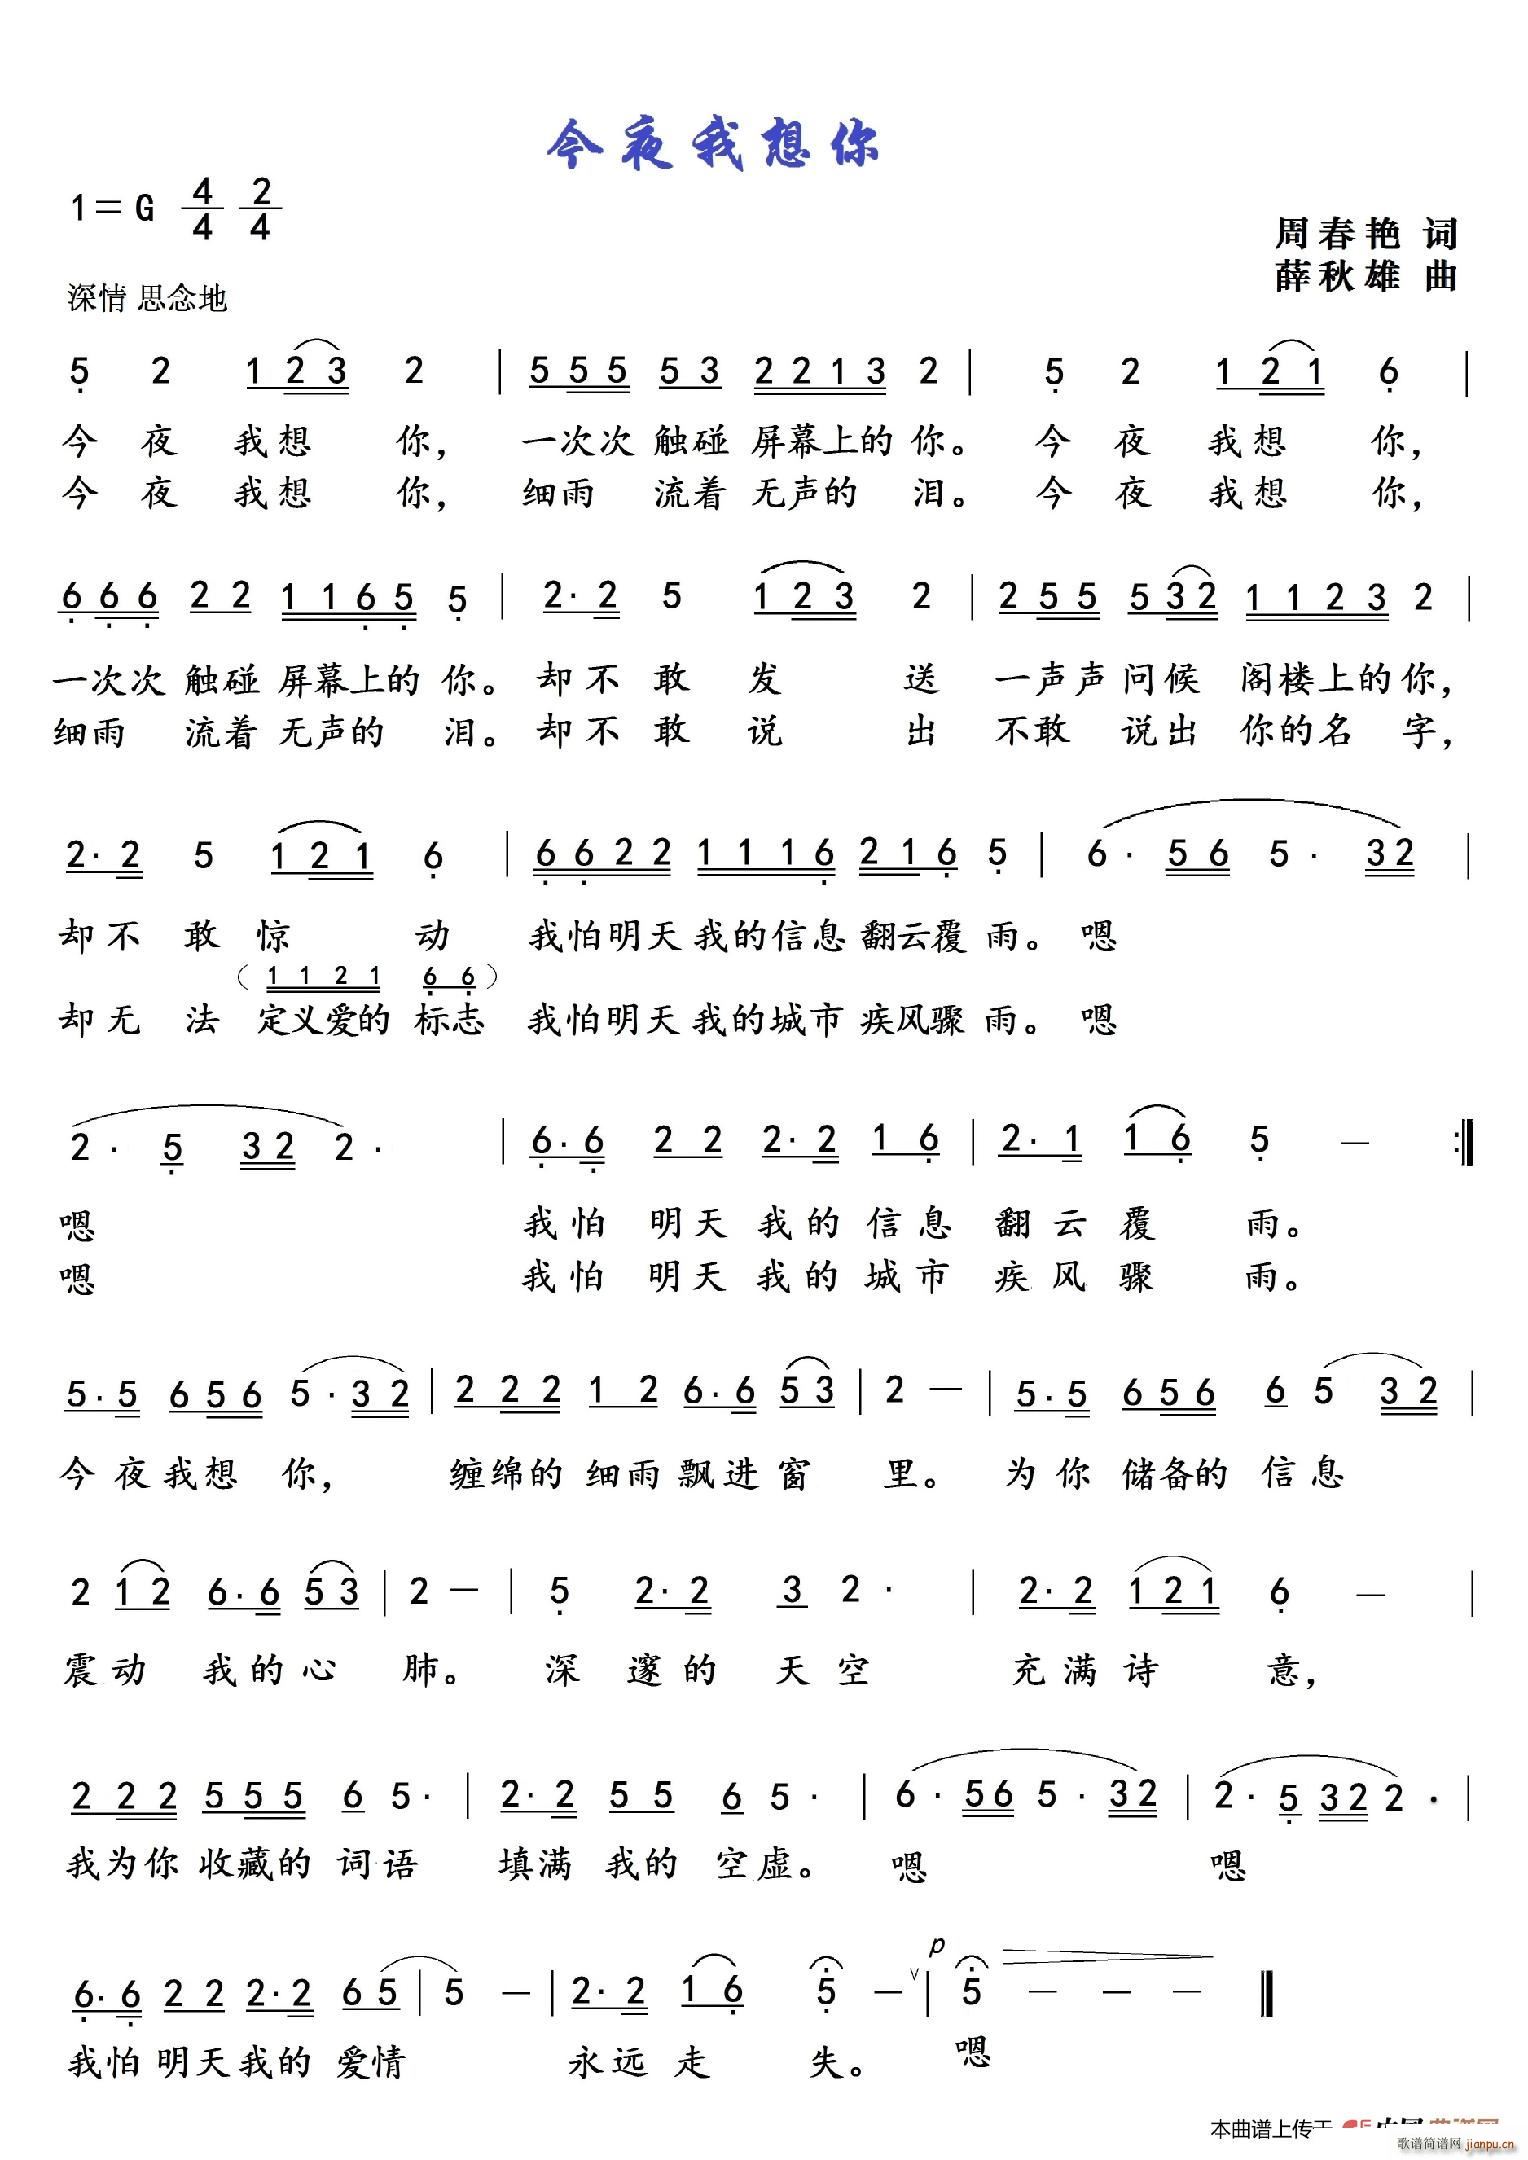 今夜我想你
1=G 4/4 2/4
周春艳 词
深情 思念地
薛秋雄 曲
5 2 1 2 3 2 | 5 5 5 5 3 2 2 1 3 2 | 5 2 1 2 1 6 |
今 夜 我 想 你, 一次次 触碰 屏幕上的 你。 今 夜 我 想 你,
今 夜 我 想 你, 细雨 流着 无声的 泪。 今 夜 我 想 你,
6 6 6 2 2 1 1 6 5 5 | 2· 2 5 1 2 3 2 | 2 5 5 5 3 2 1 1 2 3 2 |
一次次 触碰 屏幕上的 你。 却不 敢 发 送 一声声 问候 阁楼上的你,
细雨 流着 无声的 泪。 却不 敢 说 出 不敢 说出 你的名 字,
2· 2 5 1 2 1 6 | 6 6 2 2 1 1 1 6 2 1 6 5 | 6· 5 6 5· 3 2 |
却不 敢 惊 动 我怕明天我的信息翻云覆 雨。 嗯
(1 1 2 1 6 6)
却无 法 定义爱的 标志 我怕明天我的城市 疾风骤 雨。 嗯
2· 5 3 2 2· | 6· 6 2 2 2· 2 1 6 | 2· 1 1 6 5 — :||
嗯 我怕 明天 我的 信息 翻云覆 雨。
嗯 我怕 明天 我的 城市 疾风骤 雨。
5· 5 6 5 6 5· 3 2 | 2 2 2 1 2 6· 6 5 3 | 2 — | 5· 5 6 5 6 6 5 3 2 |
今夜我想 你, 缠绵的 细雨飘进窗 里。 为你 储备的 信息
2 1 2 6· 6 5 3 | 2 — | 5 2· 2 3 2· | 2· 2 1 2 1 6 — |
震动 我的心 肺。 深 邃的 天空 充满诗 意,
2 2 2 5 5 5 6 5· | 2· 2 5 5 6 5· | 6· 5 6 5· 3 2 | 2· 5 3 2 2· |
我为你 收藏的 词语 填满 我的 空虚。 嗯 嗯
p
6· 6 2 2 2· 2 6 5 | 5 — | 2· 2 1 6 5 — ∨ | 5 — — — ||
我怕 明天我的 爱情 永远 走 失。 嗯
本曲谱上传于
歌谱简谱网 jianpu.cn